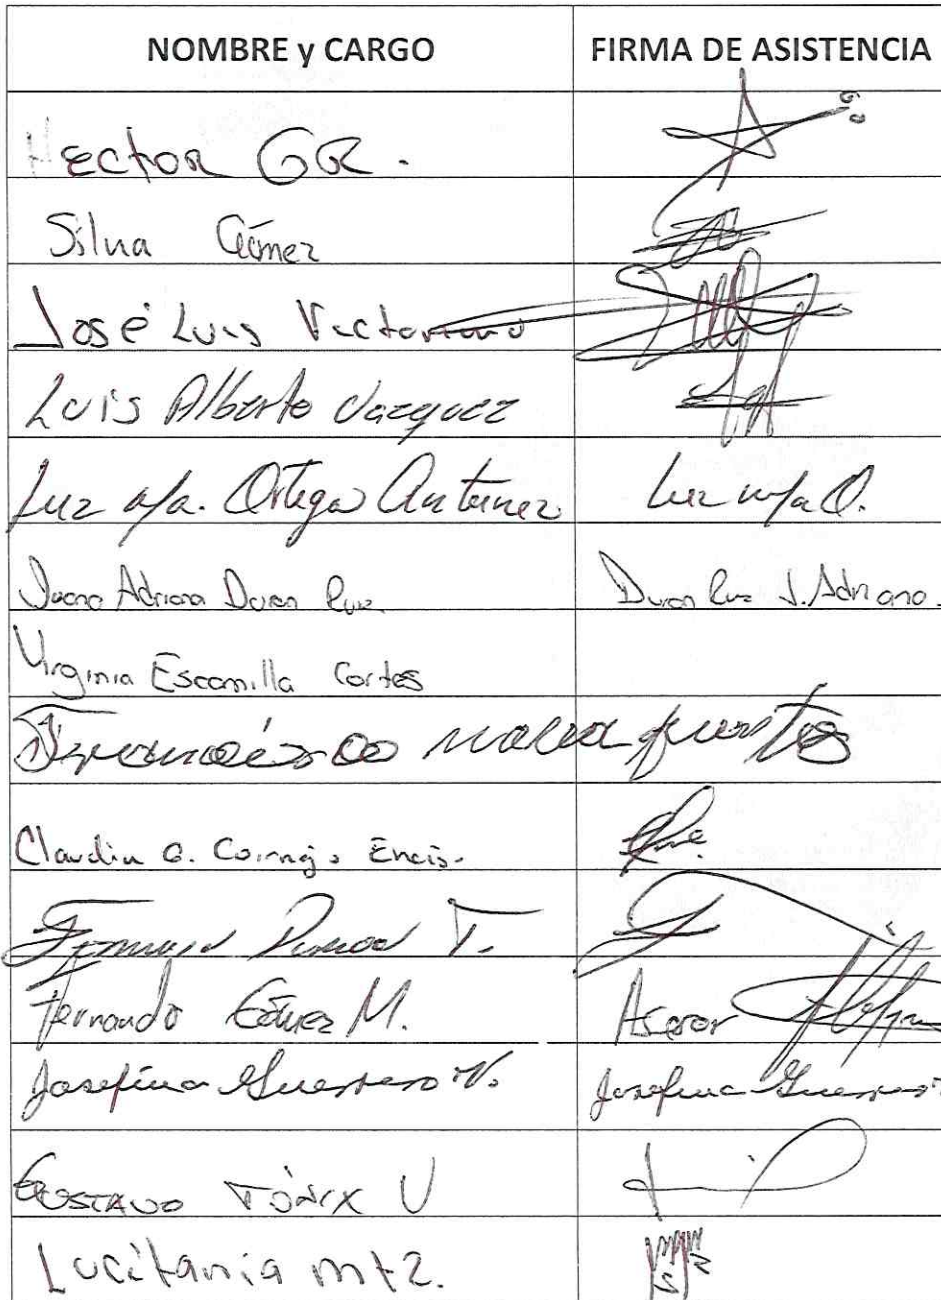 NOMBRE y CARGO FIRMA DE ASISTENCIA
Hector GR.
Silva Gómez
José Luis Victoriano
Luis Alberto Vazquez
Luz Ma. Ortega Antunez Luz Ma O.
Juana Adriana Duran Ruiz. Duran Ruiz J. Adriana.
Virginia Escamilla Cortes
Claudia G. Cornejo Encis.
Duran T.
Fernando Gómez M. Asesor
Josefina Guerrero V. Josefina Guerrero
GUSTAVO U
Lucitania mtz.